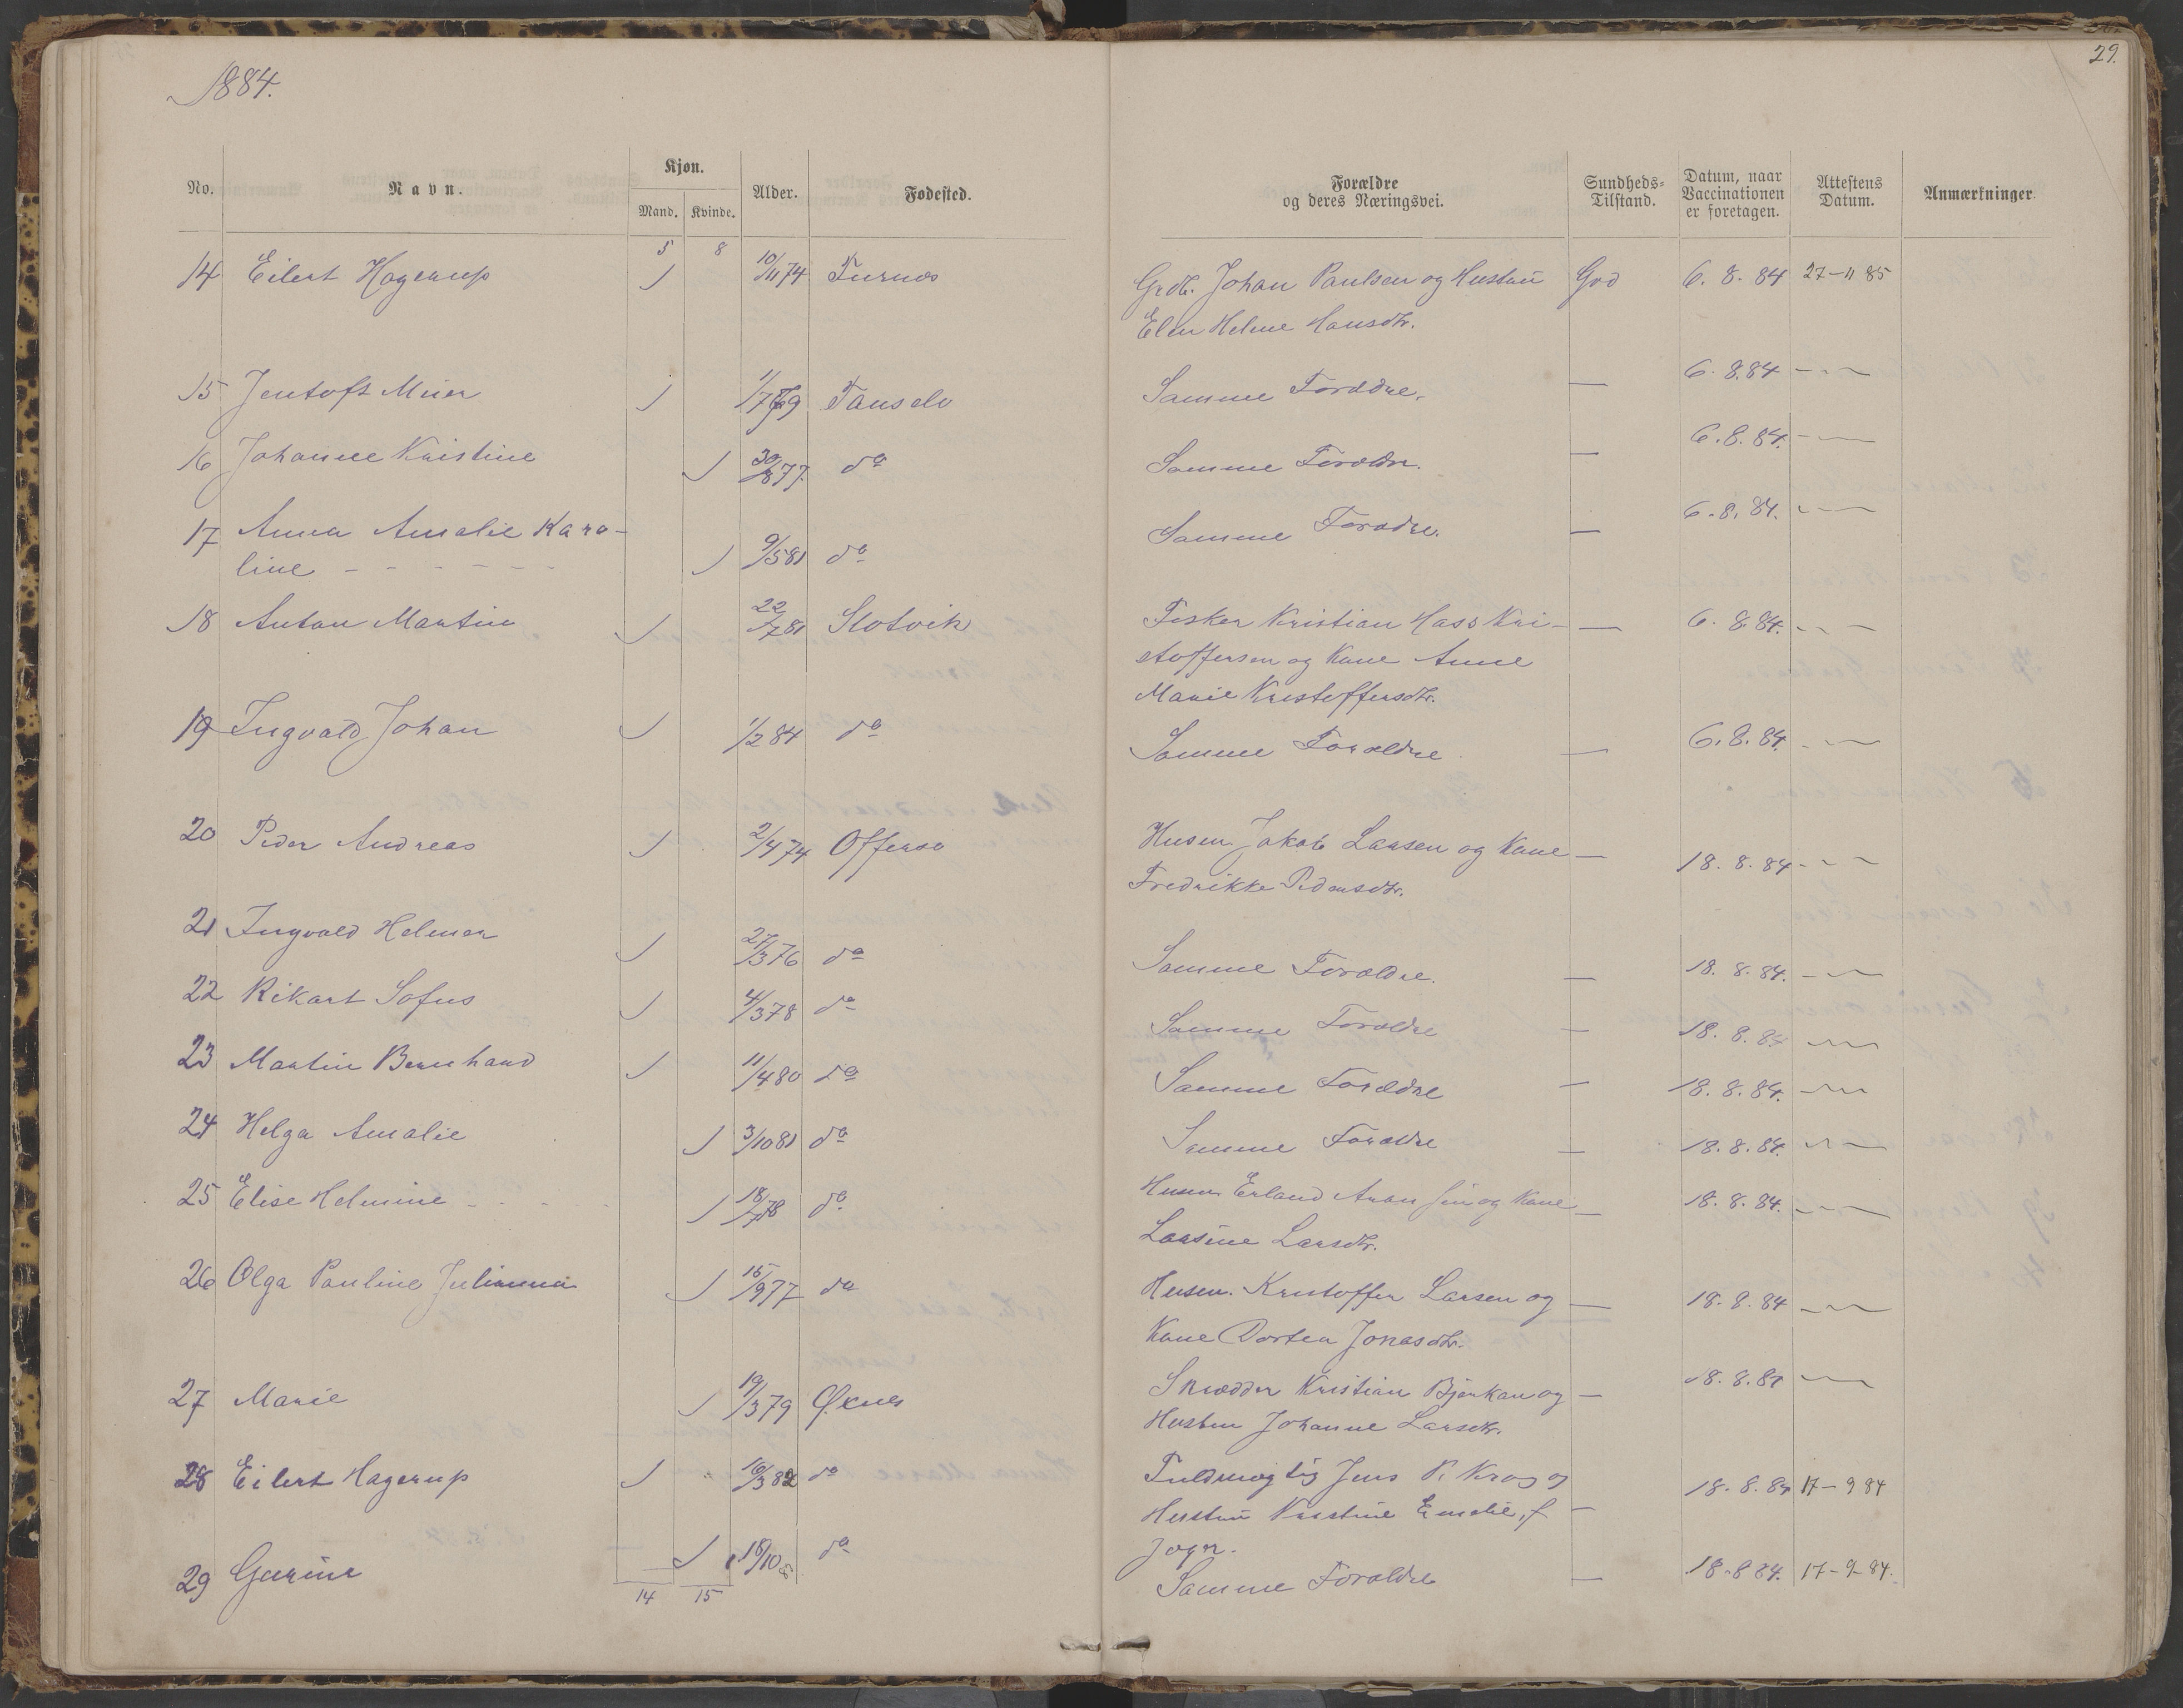 1884.
29.
No. Navn. Kjøn. Mand. Kvinde. Alder. Fødested. Forældre og deres Næringsvei. Sundheds-Tilstand. Datum, naar Vaccinationen er foretagen. Attestens Datum. Anmærkninger.
5 8
14 Eilert Hagerup 10/11 74 Turnos Grdb. Johan Paulsen og Hustru God 6. 8. 84 27-11 85
Elen Helene Hansdtr.
15 Jentoft Meier Samme Forældre. — 6. 8.84
16 Johanne Kristine 30/8 77 do Samme Forældre. — 6.8.84.
17 Anna Amalie Karo-
line 9/5 81 do Samme Forældre. — 6.8.84.
18 Anton Martin 22/7 81 Slotvik Fisker Kristian Hass Kri- — 6. 8.84.
stoffersen og Kone Anne
Marie Kristoffersdtr.
19 Ingvald Johan 1/2 84 do Samme Forældre — 6.8.84.
20 Peder Andreas 2/4 74 Offersø Husm. Jakob Larsen og Kone — 18. 8. 84
Fredrikke Pedersdtr.
21 Ingvald Helmer 27/3 76 do Samme Forældre. — 18. 8. 84.
22 Rikart Sofus 4/3 78 do Samme Forældre — 18. 8. 84
23 Martin Bernhard 11/4 80 do Samme Forældre — 18. 8. 84.
24 Helga Amalie 3/10 81 do Samme Forældre — 18. 8. 84.
25 Elise Helmine 18/7 78 do Husm. Erland og Kone — 18. 8. 84.
Larsine Larsdtr.
26 Olga Pauline Julianna 15/9 77 do Husm. Kristoffer Larsen og — 18. 8. 84
Kone Dortea Jonasdtr.
27 Marie 19/3 79 Øxnes Skrædder Kristian Bjørkan og — 18. 8. 84
Hustru Johanne Larsdtr.
28 Eilert Hagerup 16/3 82 do Fuldmægtig Jens P. Krog og — 18. 8. 84 17-9 84
Hustru Kristine Emelie, f.
29 Gurine do Samme Forældre — 18-8 84. 17-9-84.
14 15